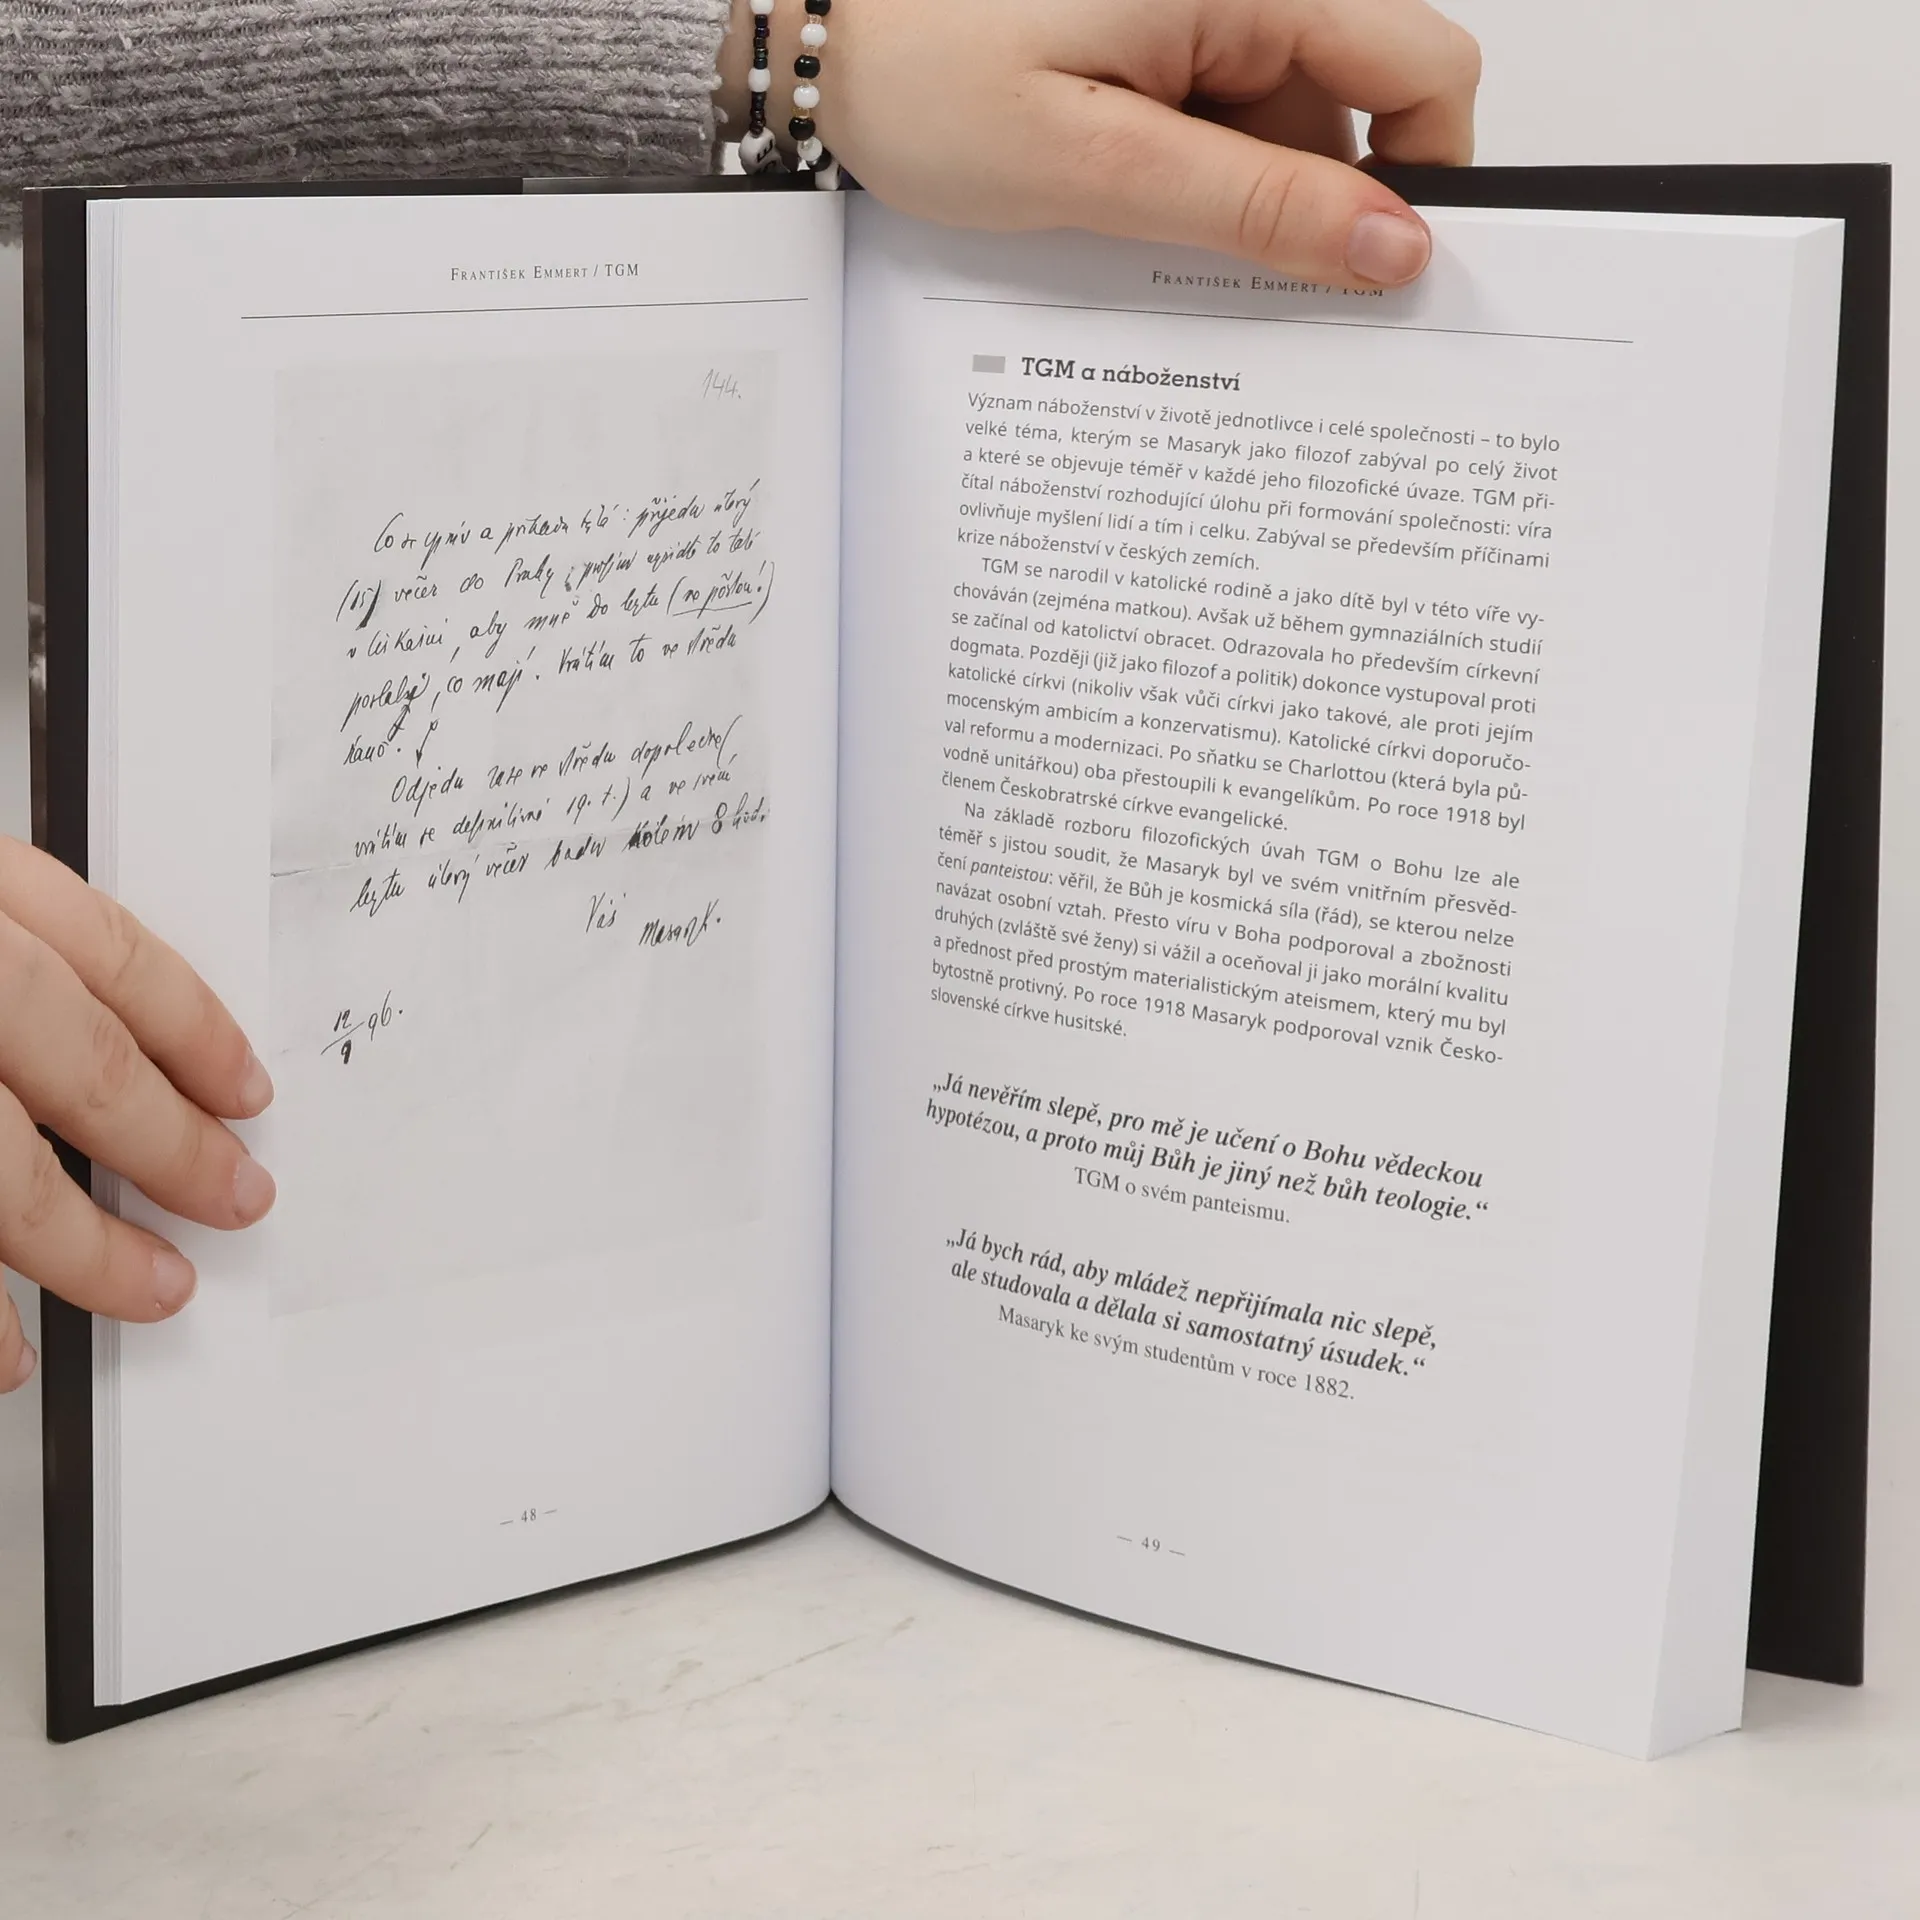 František Emmert / TGM
144.
(15) večer do Prahy
aby mně do bytu
co mají. Vrátím to ve středu
ráno.
Odjedu zase ve středu dopoledne
vrátím se definitivně 19. t.) a ve
bytu úterý večer budu kolem 8 hod.
Váš
Masaryk.
12/9 96.
— 48 —
František Emmert / TGM
TGM a náboženství
Význam náboženství v životě jednotlivce i celé společnosti – to bylo
velké téma, kterým se Masaryk jako filozof zabýval po celý život
a které se objevuje téměř v každé jeho filozofické úvaze. TGM při-
čítal náboženství rozhodující úlohu při formování společnosti: víra
ovlivňuje myšlení lidí a tím i celku. Zabýval se především příčinami
krize náboženství v českých zemích.
TGM se narodil v katolické rodině a jako dítě byl v této víře vy-
chováván (zejména matkou). Avšak už během gymnaziálních studií
se začínal od katolictví obracet. Odrazovala ho především církevní
dogmata. Později (již jako filozof a politik) dokonce vystupoval proti
katolické církvi (nikoliv však vůči církvi jako takové, ale proti jejím
mocenským ambicím a konzervatismu). Katolické církvi doporučo-
val reformu a modernizaci. Po sňatku se Charlottou (která byla pů-
vodně unitářkou) oba přestoupili k evangelíkům. Po roce 1918 byl
členem Českobratrské církve evangelické.
Na základě rozboru filozofických úvah TGM o Bohu lze ale
téměř s jistou soudit, že Masaryk byl ve svém vnitřním přesvěd-
čení panteistou: věřil, že Bůh je kosmická síla (řád), se kterou nelze
navázat osobní vztah. Přesto víru v Boha podporoval a zbožnosti
druhých (zvláště své ženy) si vážil a oceňoval ji jako morální kvalitu
a přednost před prostým materialistickým ateismem, který mu byl
bytostně protivný. Po roce 1918 Masaryk podporoval vznik Česko-
slovenské církve husitské.
„Já nevěřím slepě, pro mě je učení o Bohu vědeckou
hypotézou, a proto můj Bůh je jiný než bůh teologie.“
TGM o svém panteismu.
„Já bych rád, aby mládež nepřijímala nic slepě,
ale studovala a dělala si samostatný úsudek.“
Masaryk ke svým studentům v roce 1882.
— 49 —